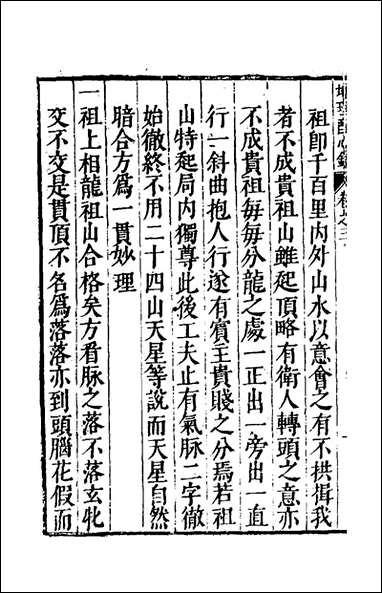 祖卽千百里内外山水以意會之有不拱揖我
者不成貴祖山雖起頂略有衛人轉頭之意亦
不成貴祖每每分龍之處一正出一旁出一直
行一斜曲抱人行遂有賓主貴賤之分焉若祖
山特起局内獨尊此後工夫止有氣脉二字徹
始徹終不用二十四山天星等說而天星自然
暗合方爲一貫妙理
一祖上相龍祖山合格矣方看脉之落不落玄牝
交不交是貫頂不名爲落落亦到頭腦花假而